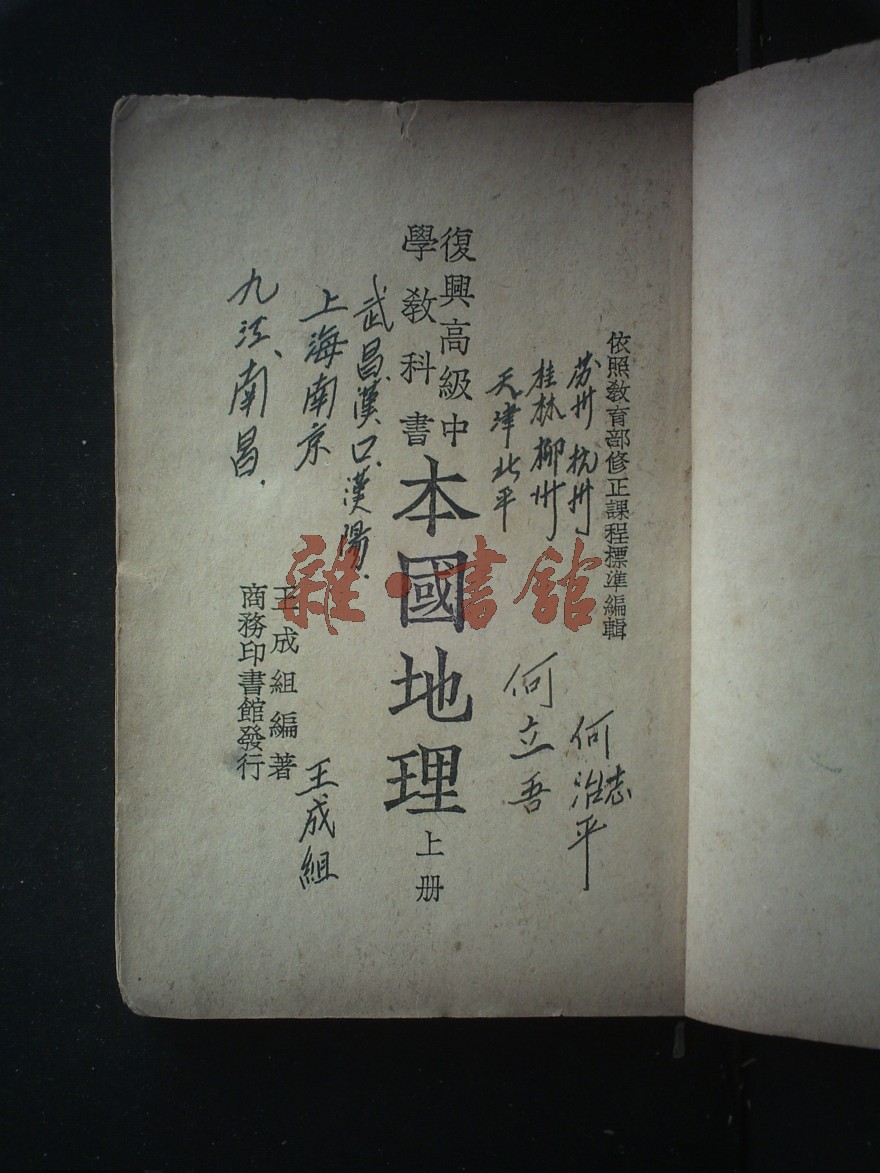 依照教育部修正課程標準編輯
蘇州 杭州
桂林 柳州
天津 北平
何治平
志
何立吾
復興高級中
學教科書
本國地理
上册
武昌、漢口、漢陽.
上海南京
九江、南昌.
王成組編著
商務印書館發行
王成組
雜·書館